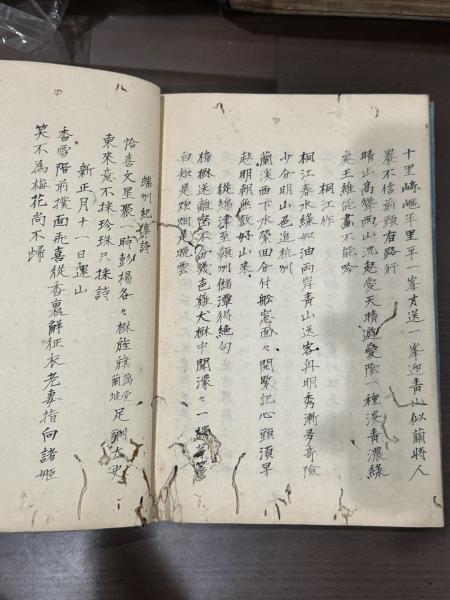 十里崎嶇半里平一峯才送一峯迎青山似繭將人
裹不信前頭有路行
晴山高聳雨山沈起愛天晴遊愛陰一種淡青濃綠
處王維能畫不能吟
桐江作
桐江春水綠如油兩岸青山送客舟明秀漸多奇險
少分明山色近杭州
蘭溪西下水縈回分付船窓面々開緊記心頭須早
起明朝無數好山來
從綿津至贛州儲潭得絶句
楊柳迷離密不分幾邑雞犬柳中聞濛々一縷
白知是炊烟是晚雲
端州紀詩
恰喜文星聚一時彭楊各々樹旌旗蘭坡足太史
東來意不採珍珠只採詩
新正月十一日還山
香雪階前撲面飛喜從香裏解征衣老妻指向諸姬
笑不為梅花尚不歸